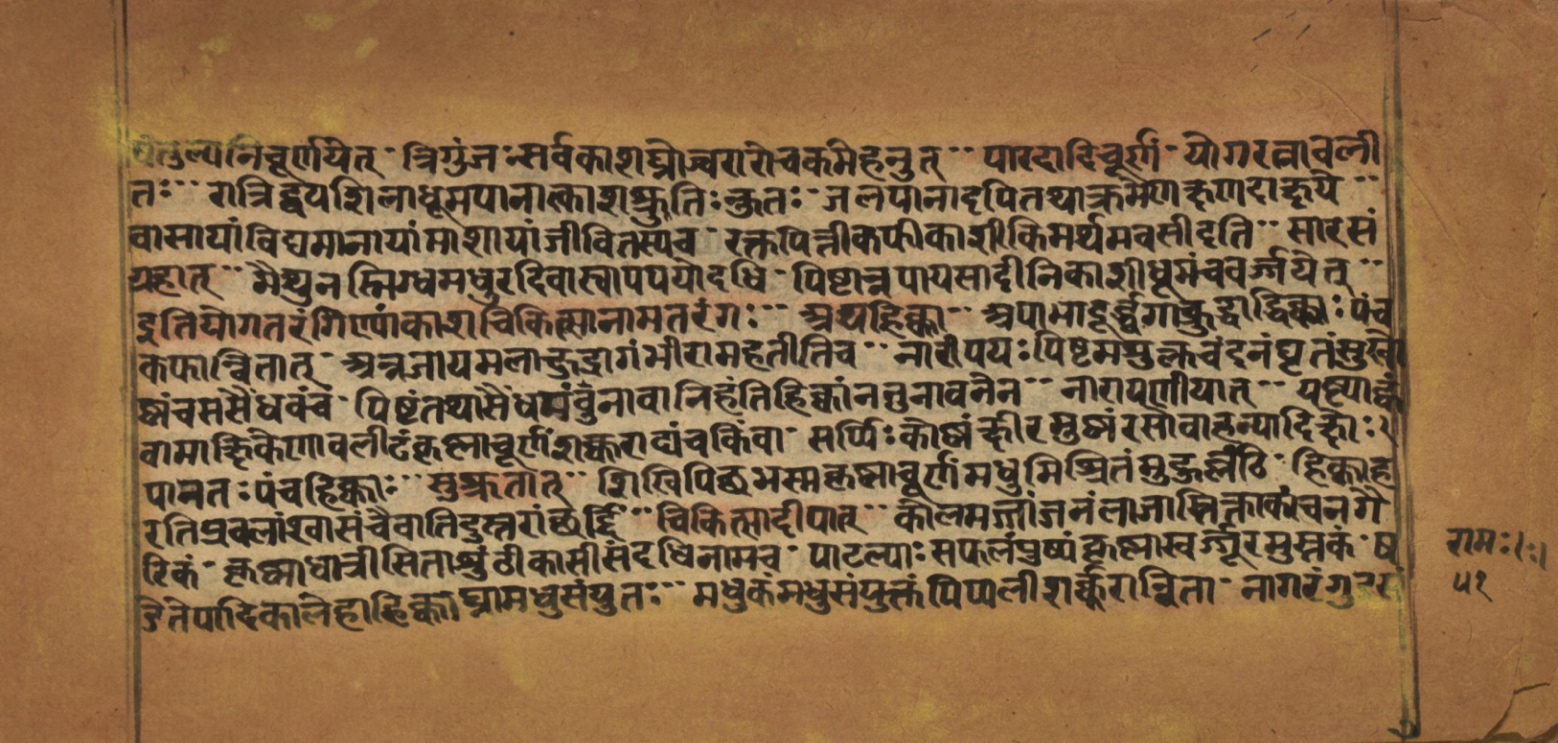 पेतुल्यनिचूर्णयेत् त्रिगुंज सर्वकाशघ्नोज्वरारोचकमेहनुत् पारदादिचूर्णं योगरत्नावली
तः रात्रिद्वयशिलाधूमपानात्काशश्रुतिः कुतः जलपानादपितथाक्रमेण
वासायांविद्यमानायांमाशायांजीवितस्यच रक्तपित्तीकफीकाशीकिमर्थमवसीदति सारसं
ग्रहात् मैथुनस्निग्धमधुरदिवास्वापपयोदधि पिष्टान्नपायसादीनिकाशीधूमंचवर्ज्जयेत्
इतियोगतरंगिण्यांकाशचिकित्सानामतरंगः अथहिक्का पंच
कफान्वितात् अन्नजायमलाक्षुद्रागंभीरामहतीतिच नारीपयःपिष्टमसुक्तचंदनंघृतंसुखो
ष्णंचससैंधवंच पिष्टंतथासैंधवमंबुनावानिहंतिहिक्कांननुनावनेन नारायणीयात्
चूर्णंशर्कराद्यंचकिंवा सर्प्पिः कोष्णंक्षीरमुष्णंरसोवा
पानतः पंचहिक्काः सुश्रुतात् शिखिपिछभस्मकृष्णाचूर्णंमधुमिश्रितंमुहुर्लीढं हिक्कांह
रतिप्रबलांश्वासंचैवातिदुस्तरांछर्द्दिं चिकित्सादीपात् कोलमज्जांजनंलाजास्तिक्ताकांचनगै
रिकं कृष्णाधात्रीसिताशुंठीकासीसंदधिनामच पाटल्याः सफलंपुष्पंकृष्णाखर्ज्जूरमुस्तकं ष
डेतेपादिकालेहाहिक्काघ्नामधुसंयुतः मधुकंमधुसंयुक्तंपिप्पलीशर्करान्विता नागरंगुडसं
रामः
५१